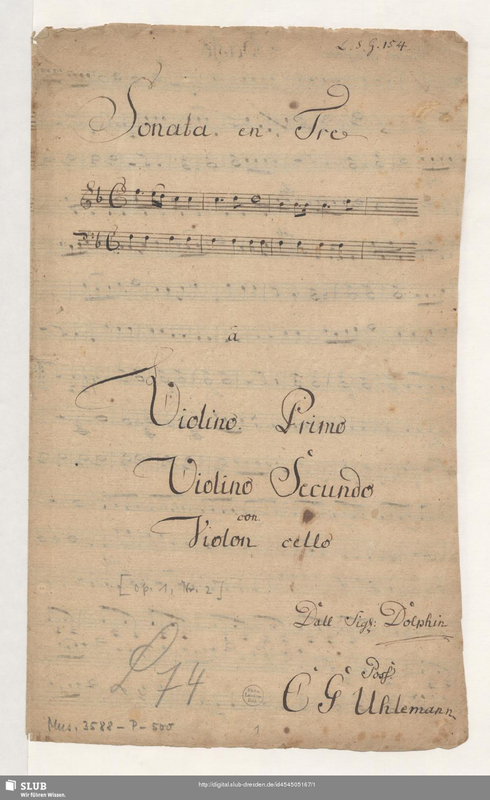 L. S. G. 154
Sonata en Tre
á
Violino Primo
Violino Secundo
con
Violon cello
[op. 1, Nr. 2]
Dall Sigr: Dolphin
L 74
Poss.
C G Uhlemann
Mus. 3588-P-500
1
SLUB
Wir führen Wissen.
http://digital.slub-dresden.de/id454505167/1